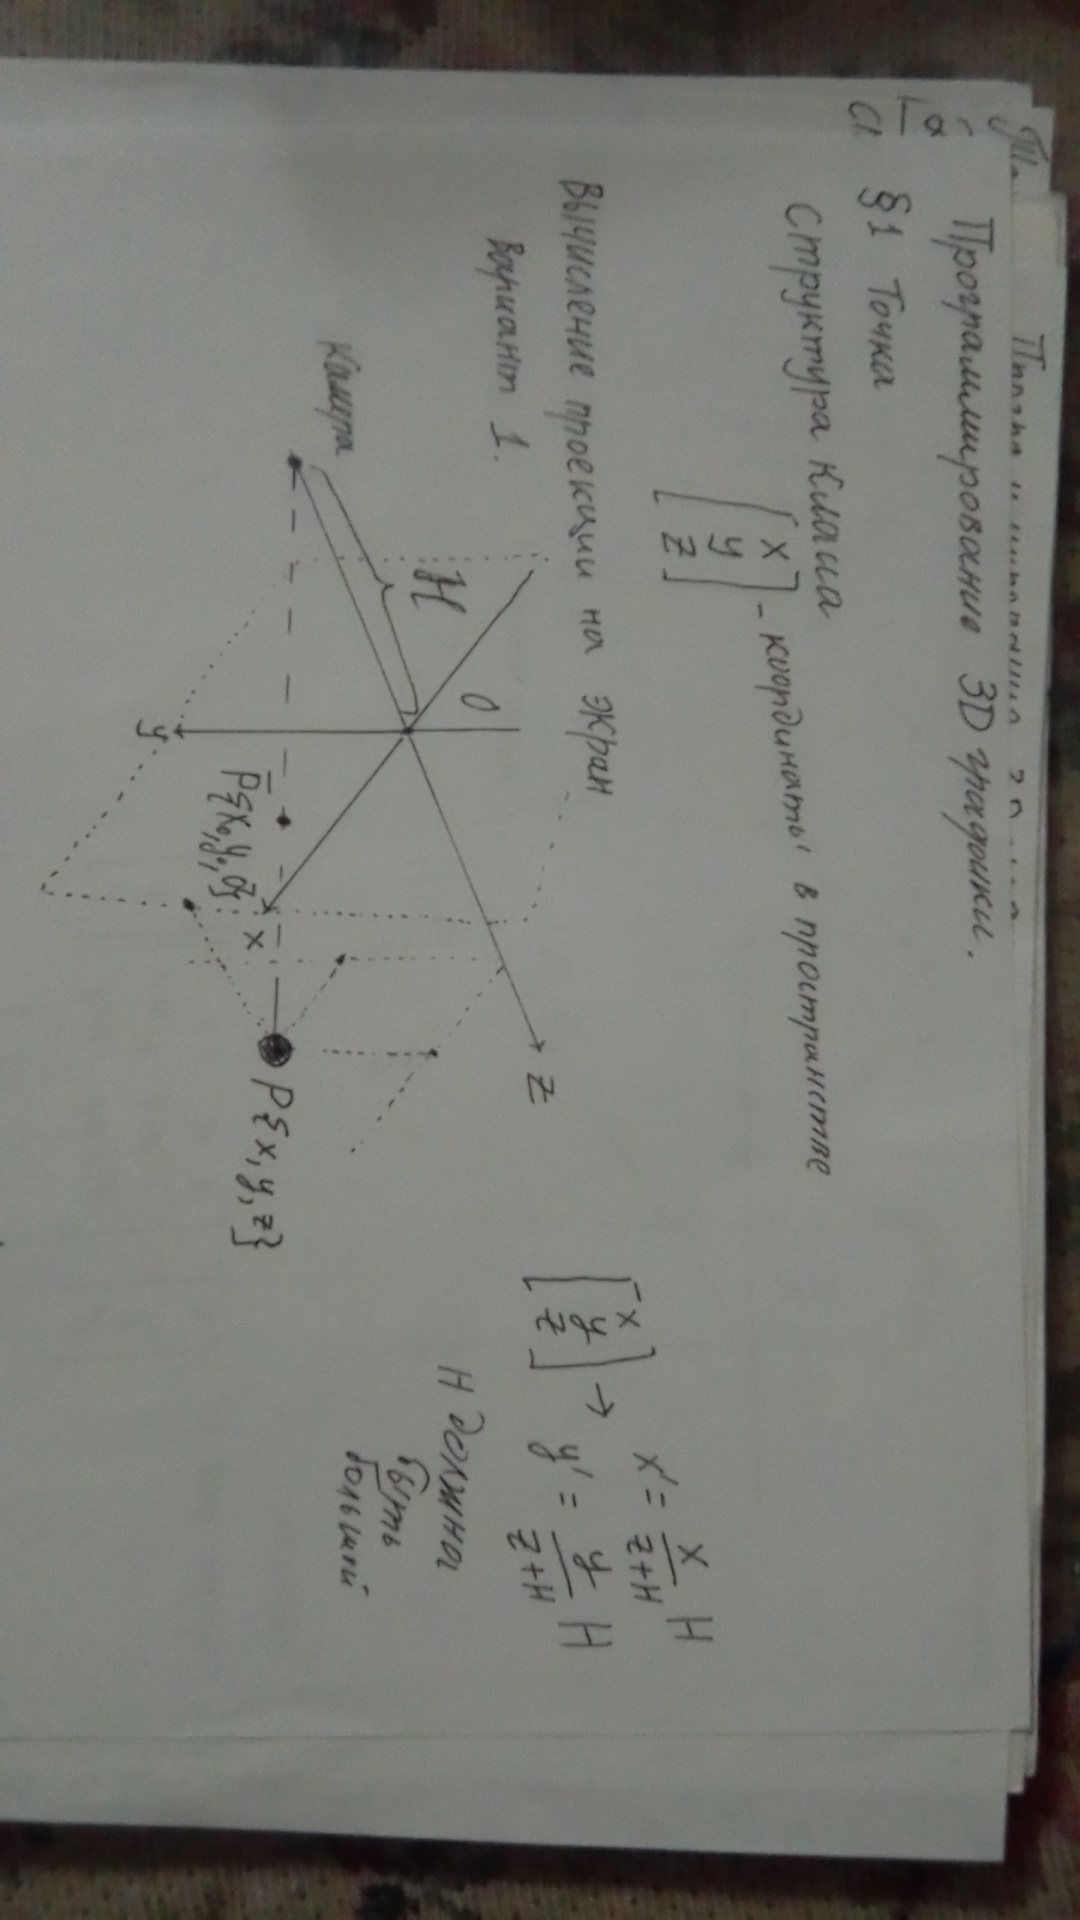 Программирование 3D графики.
§1 Точка
Структура Класса
[x y z] - координаты в пространстве
Вычисление проекции на экран
Вариант 1.
Камера
H
O
Z
y
x
P̅{x₀,y₀,0}
P{x,y,z}
[x y z] → x' = x/(z+H) H
y' = y/(z+H) H
H должна
быть
большой